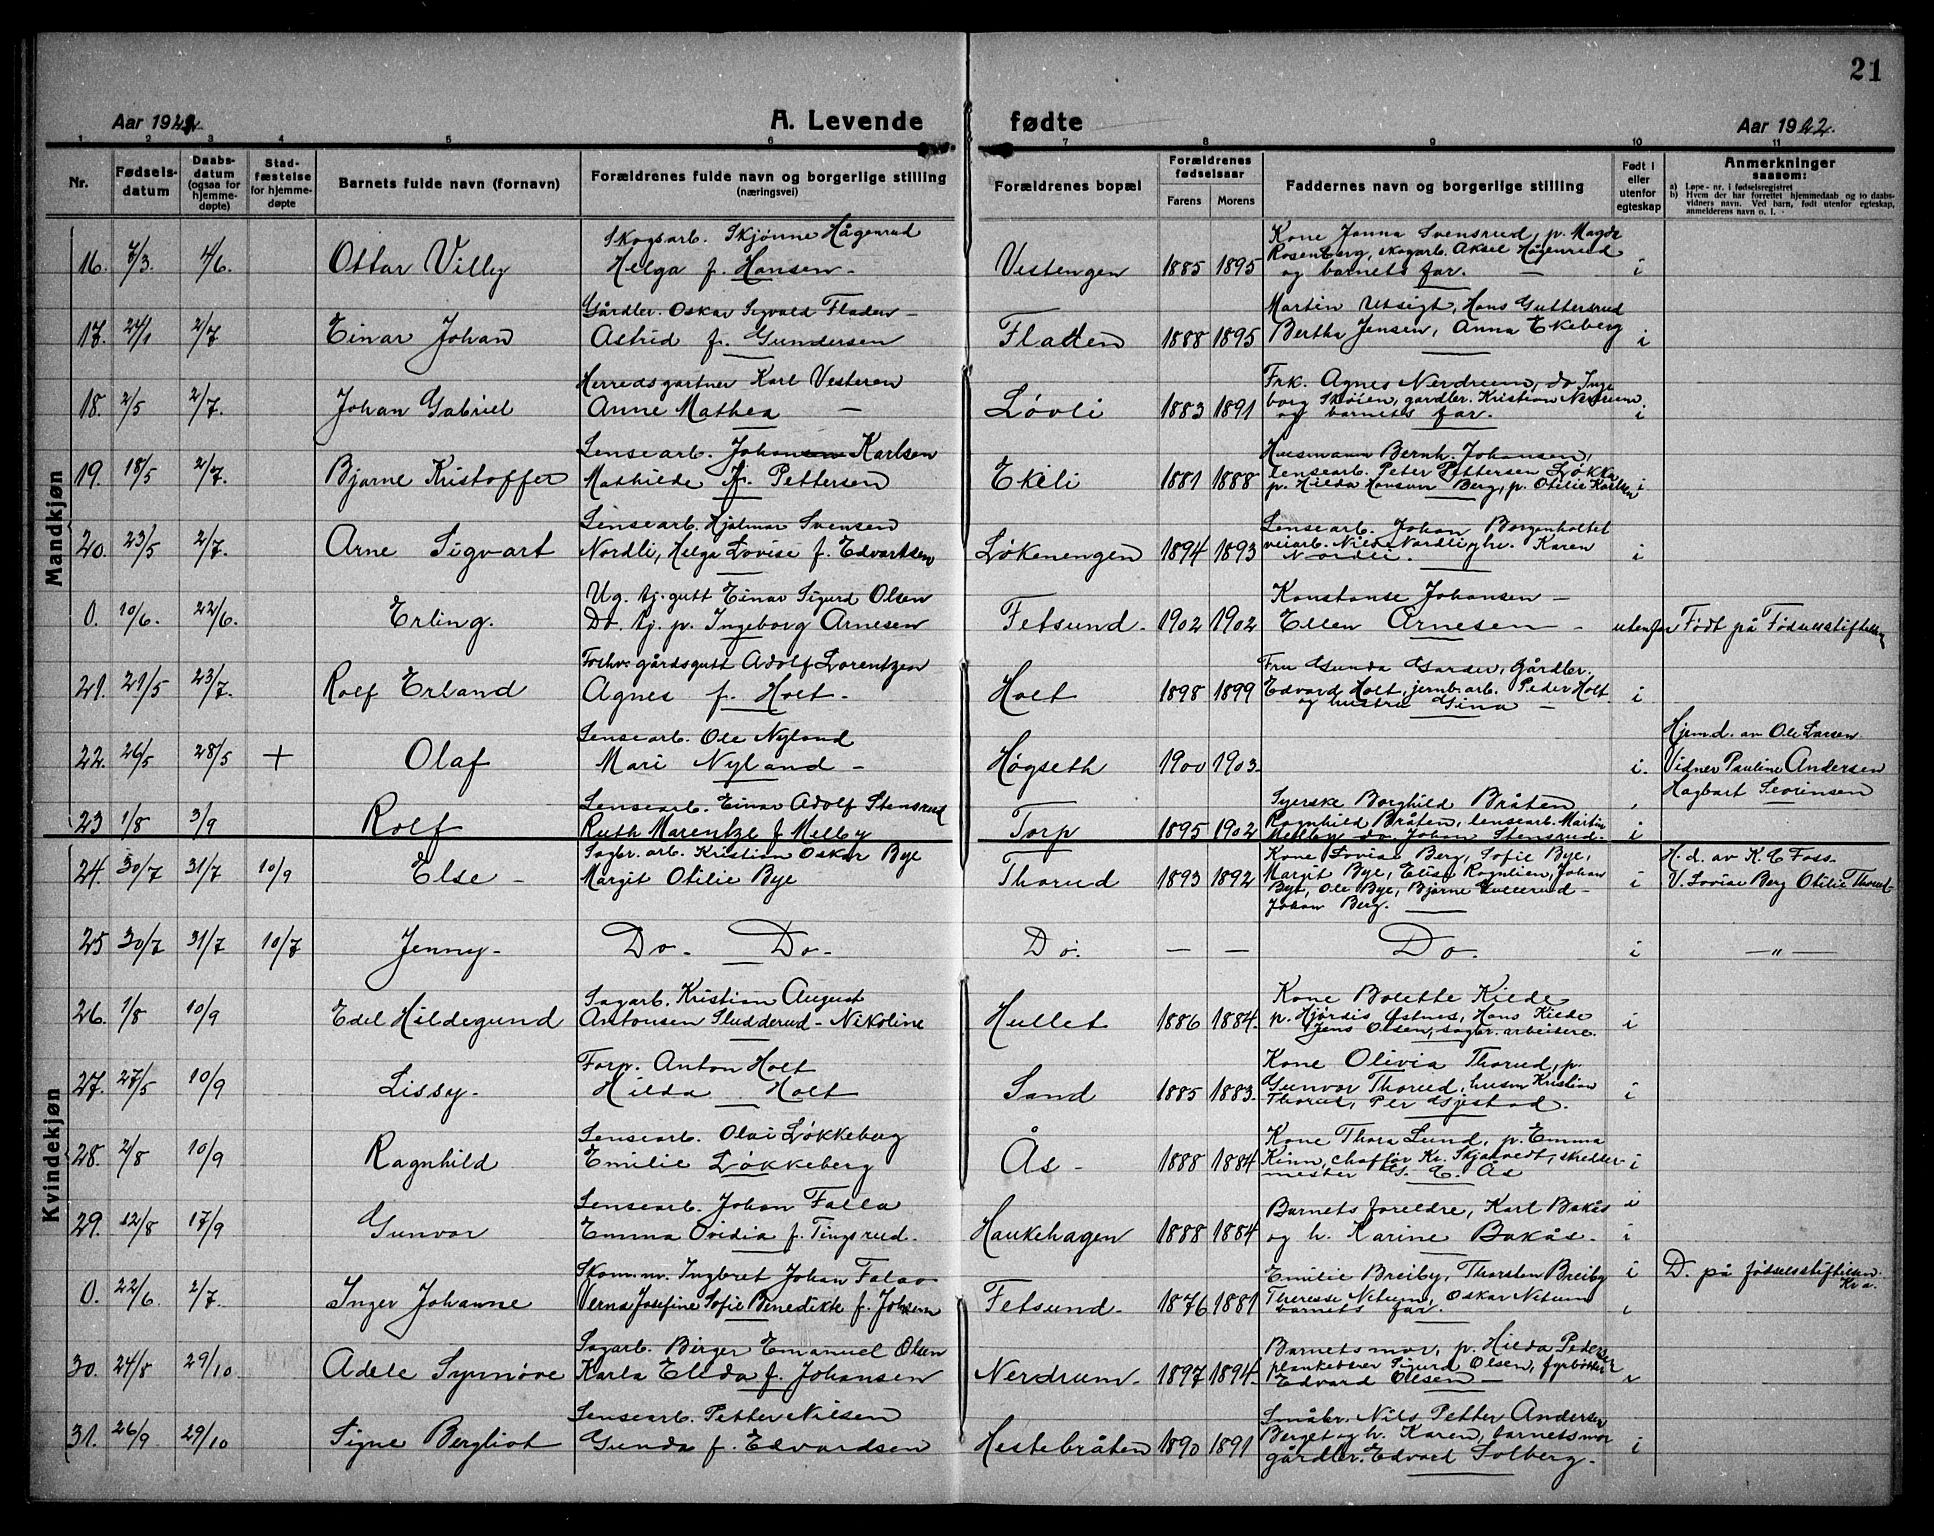 21
Aar 1922
A. Levende fødte
Aar 1922.
1 2 3 4 5 6 7 8 9 10 11
Nr.
Fødsels-
datum
Daabs-
datum
(ogsaa for
hjemme-
døpte)
Stad-
fæstelse
for hjemme-
døpte
Barnets fulde navn (fornavn)
Forældrenes fulde navn og borgerlige stilling
(næringsvei)
Forældrenes bopæl
Forældrenes
fødselsaar
Farens Morens
Faddernes navn og borgerlige stilling
Født i
eller
utenfor
egteskap
Anmerkninger
saasom:
a) Løpe-nr. i fødselsregistret
b) Hvem der har forrettet hjemmedaab og to daabs-
vidners navn. Ved barn, født utenfor egteskap,
anmelderens navn o. l.
Mandkjøn
16. 7/3 4/6. Ottar Villy
Skogsarb. Skjønne Hågenrud
Helga f. Hansen -
Vestengen 1885 1895
Kone Janna Svensrud, p. Magda
Rosenberg, skogarb. Aksel Hågenrud
og barnets far. -
i
17. 24/1 2/7 Einar Johan
Gårdbr. Oskar Sigvald Fladen -
Astrid f. Gundersen
Fladen 1888 1895
Martin Utsigt, Hans Guttersrud
Bertha Jensen, Anna Ekeberg
i
18. 2/5 2/7. Johan Gabriel
Herredsgartner Karl Vesteren
Anne Mathea -
Løvli 1883 1891
Frk. Agnes Nerdrum, do Inge
borg Skøien, gårdbr. Kristian Nerdrum
og barnets far.
i
19. 18/5 2/7. Bjarne Kristoffer
Lensearb. Johan Karlsen
Mathilde f. Pettersen
Ekeli 1881 1888
Husmann Bernh. Johansen,
lensearb. Peter Pettersen Løkka
p. Hilda Hansen Berg, p. Otilie Karlsen
i
20. 23/5 2/7. Arne Sigvart
Lensearb. Hjalmar Svensen
Nordli, Helga Lovise f. Edvartsen
Løkenengen 1894 1893
Lensearb. Johan Borgenholtet
veiarb. Nils Nordli, hr. Karen
Nordli.
i
0. 10/6. 22/6. Erling.
Ug. tj. gutt Einar Sigurd Olsen
Do. tj. p. Ingeborg Arnesen
Fetsund. 1902 1902
Konstanse Johansen -
Ellen Arnesen -
utenfor Født på Fødselsstiftelsen
21. 21/5 23/7. Rolf Erland
gårdsgutt Adolf Lorentzen
Agnes f. Holt.
Holt 1898 1899
Fru Gunda Garder, gårdbr.
Edvard Holt, jernb.arb. Peder Holt
og hustru Gina -
i
22. 26/5 28/5 + Olaf
Lensearb. Ole Nyland
Mari Nyland -
Høgseth 1900 1903.
i.
Hjemd. av Ole Larsen.
Vidner Pauline Andersen
Hagbart Seorinsen
23 1/8 3/9 Rolf
Lensearb. Einar Adolf Stensrud
Ruth Marentze f Melby
Torp 1895 1902
Syerske Borghild Bråten
Ragnhild Bråten, lensearb. Martin
Melby do. Johan Stensrud.
i
Kvindekjøn
24. 30/7 31/7 10/9 Else -
Sagbr. arb. Kristian Oskar Bye
Margit Otilie Bye
Thorud 1893 1892
Kone Lovise Berg, Sofie Bye,
Margit Bye, Elise Rognlien, Johan
Bye, Ole Bye, Bjarne Gullerud -
Johan Berg.
i
H. d. av K. E Foss.
V. Lovise Berg Otilie Thorud
25 30/7 31/7 10/7 Jenny-
Do - Do -
Do. - -
Do.
i - " -
26. 1/8 10/9 Edel Hildegund
Sagarb. Kristian August
Antonsen Sludderud - Nikoline
Hullet 1886 1884.
Kone Bolette Kilde
p. Hjørdis Østnes, Hans Kilde
Jens Olsen, sagbr. arbeidere.
i
27. 27/5 10/9 Lissy.
Forp. Anton Holt
Hilda Holt
Sand 1885 1883.
Kone Olivia Thorud, p.
Gunvor Thorud, husm Kristian
Thorud, Per
i
28. 2/8 10/9 Ragnhild
Lensearb. Olai Løkkeberg
Emilie Løkkeberg
Ås - 1888 1884
Kone Thora Lund, p. Emma
Kinn, chaffør Kr. Skjatvedt, skredder-
mester G. E. Ås
i
29. 12/8 17/9 Gunvor
Lensearb. Johan Falla
Emma Ovidia f. Tingsrud.
Haukehagen 1888 1884
Barnets foreldre, Karl Bakås
og h. Karine Bakås.
i
i
0. 22/6. 2/7. Inger Johanne
Skom.m. Ingbret Johan Falao
Verna Josefine Sofie Benedikte f. Johnsen
Fetsund. 1876 1881
Emilie Breiby, Thorsten Breiby
Theresse Nitum, Oskar Nitum
barnets far.
i
i
D. på fødselsstiftelsen.
Kr a.
30. 24/8 29/10. Adele Synnøve
Sagarb. Birger Emanuel Olsen
Karla Elida f. Johansen
Nerdrum. 1897 1894.
Barnets mor, p. Hilda Pedersen
plankebærer Sigurd Olsen, fyrbøter
Edvard Olesen -
i
31. 26/9 29/10 Signe Bergliot
Lensearb. Petter Nilsen
Gunda f. Edvardsen
Hestebråten 1890 1891
Småbr. Nils Petter Andersen
Berget og h. Karen, barnets mor
gårdbr. Edvard Solberg.
i